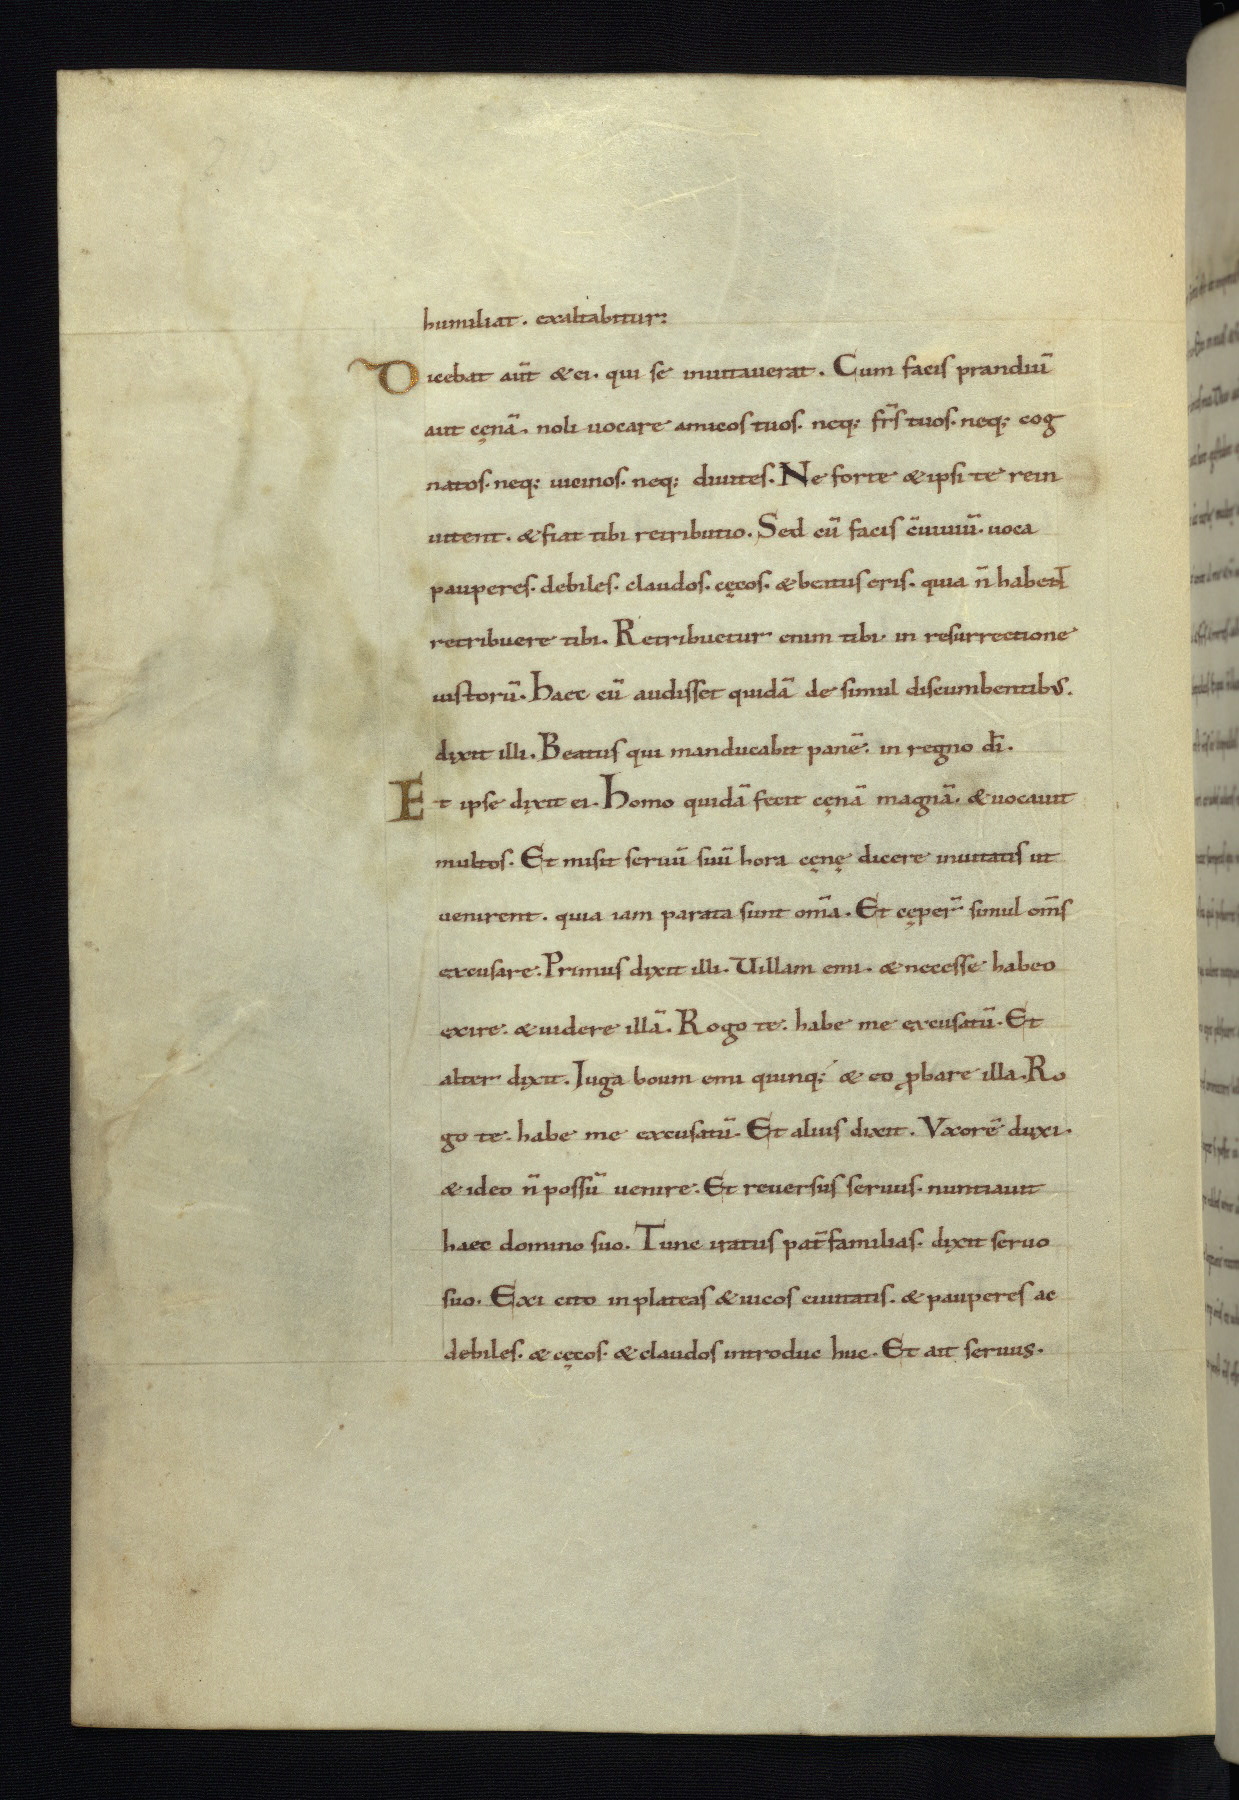 humiliat. exaltabitur:
Dicebat aut̄ & ei. qui se inuitauerat. Cum facis prandiū
aut cęnā. noli uocare amicos tuos. neq; fr̄s tuos. neq; cog
natos. neq; uicinos. neq; diuites. Ne forte & ipsi te rein
uitent. & fiat tibi retributio. Sed cū facis c̄uiuiū. uoca
pauperes. debiles. claudos. cęcos. & beatus eris. quia n̄ habent
retribuere tibi. Retribuetur enim tibi in resurrectione
iustorū. Haec cū audisset quidā de simul discumbentibus.
dixit illi. Beatus qui manducabit panē. in regno dī.
Et ipse dixit ei. Homo quidā fecit cęnā magnā. & uocauit
multos. Et misit seruū suū hora cęnę dicere inuitatis ut
uenirent. quia iam parata sunt om̄a. Et cęper̄ simul om̄s
excusare. Primus dixit illi. Uillam emi. & necesse habeo
exire. & uidere illā. Rogo te. habe me excusatū. Et
alter dixit. Iuga boum emi quinq; & eo ꝓbare illa. Ro
go te. habe me excusatū. Et alius dixit. Vxorē duxi.
& ideo n̄ possū uenire. Et reuersus seruus. nuntiauit
haec domino suo. Tunc iratus pat̄familias. dixit seruo
suo. Exi cito in plateas & uicos ciuitatis. & pauperes ac
debiles. & cęcos. & claudos introduc huc. Et ait seruus.